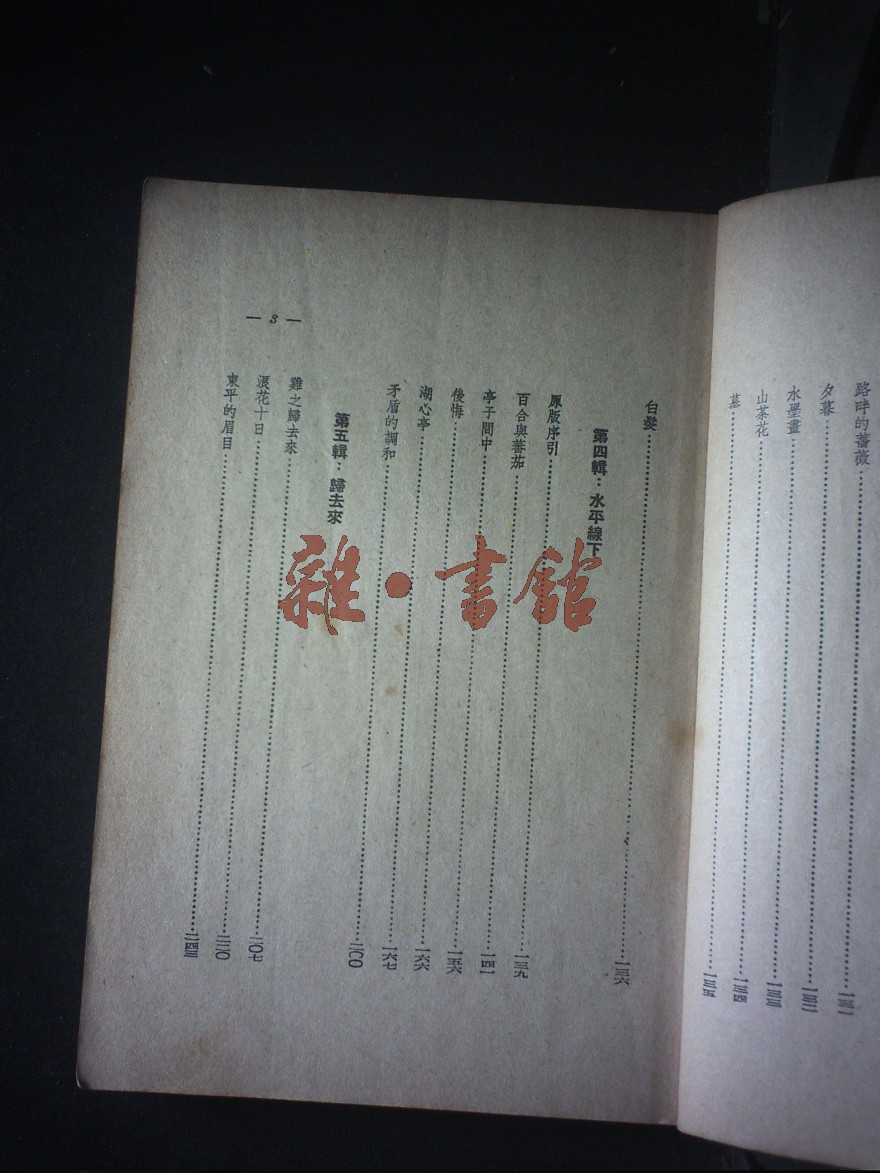 路畔的薔薇……一三一
夕暮……一三二
水墨畫……一三三
山茶花……一三四
墓……一三五
白髮……一三六
第四輯：水平線下
原版序引……一三九
百合與蕃茄……一四一
亭子間中……一五六
後悔……一六六
湖心亭……一六七
矛盾的調和……二〇〇
第五輯：歸去來
雞之歸去來……二〇七
浪花十日……二二〇
東平的眉目……二四三
— 3 —
雜·書館